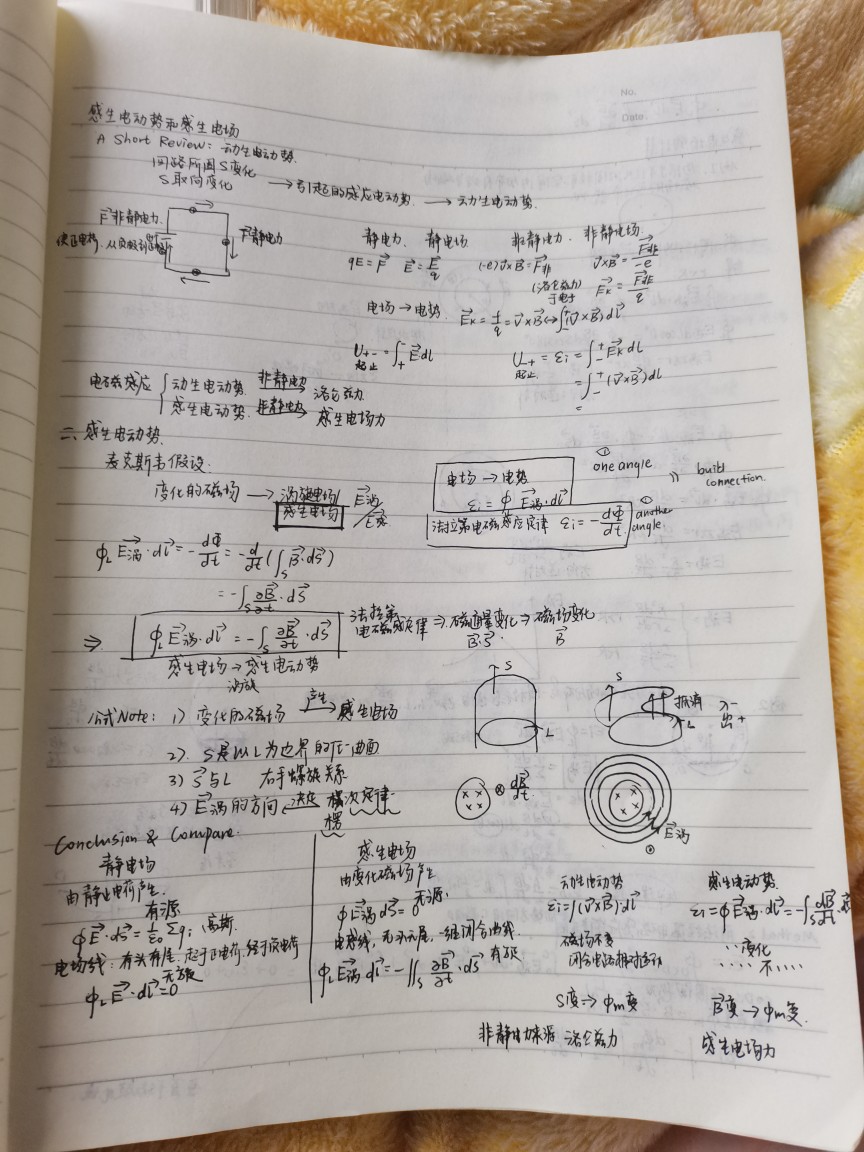 No.
Date.
感生电动势和感生电场
A Short Review: 动生电动势.
回路所围S变化
S取向变化 → 引起的感应电动势. → 动生电动势.
F非静电力. F静电力
使正电荷.从负极到正极
静电力. 静电场 非静电力. 非静电场.
qE=F E=E/q (-e)v×B=F非 v×B=F非/-e
(洛仑兹力) 于电子 Ek=F非/q
电场→电势. Ek=f/q=v×B↔∫(v×B)dl
U+-=∫Edl U+=εi=∫Ekdl
起止 起止.
=∫(v×B)dl
=
电磁感应 { 动生电动势. 非静电力→ 洛仑兹力
感生电动势. 非静电力→ 感生电场力
二、感生电动势.
麦克斯韦假设:
变化的磁场 → 涡旋电场/感生电场 E涡/E感
电场→电势 ① one angle
εi=∮E涡·dl
法拉第电磁感应定律 εi=-dΦ/dt. another angle.
)) build connection.
∮L E涡·dl=-dΦ/dt=-d/dt(∫S B·dS)
=-∫S ∂B/∂t·dS
⇒ ∮L E涡·dl=-∫S ∂B/∂t·dS 法拉第电磁感应定律⇒磁通量变化⇒磁场变化
B·S B
感生电场→感生电动势
涡旋
公式Note: 1) 变化的磁场 产生→ 感生电场
2). S是以L为边界的任一曲面
3) S与L 右手螺旋关系
4) E涡的方向 决定 楞次定律
楞
S L
S 抵消 L 入- 出+
×× ×× ⊗ dB/dt.
×× ×× E涡 ⊙
Conclusion & Compare.
静电场
由静止电荷产生.
有源
∮E·dS=1/ε0 Σqi (高斯.
电场线: 有头有尾.起于正电荷.终于负电荷
无旋
∮L E·dl=0
感生电场
由变化磁场产生
无源.
∮E涡dS=0
电感线,无头无尾,一组闭合曲线.
∮L E涡dl=-∬S ∂B/∂t·dS 有旋
动生电动势 感生电动势.
εi=∫(v×B)·dl εi=∮E涡·dl=-∫S dB/dt.
磁场不变 ··变化
闭合电路相对运动 ····不····
S变→Φm变 B变→Φm变.
非静电力来源 洛仑兹力 感生电场力